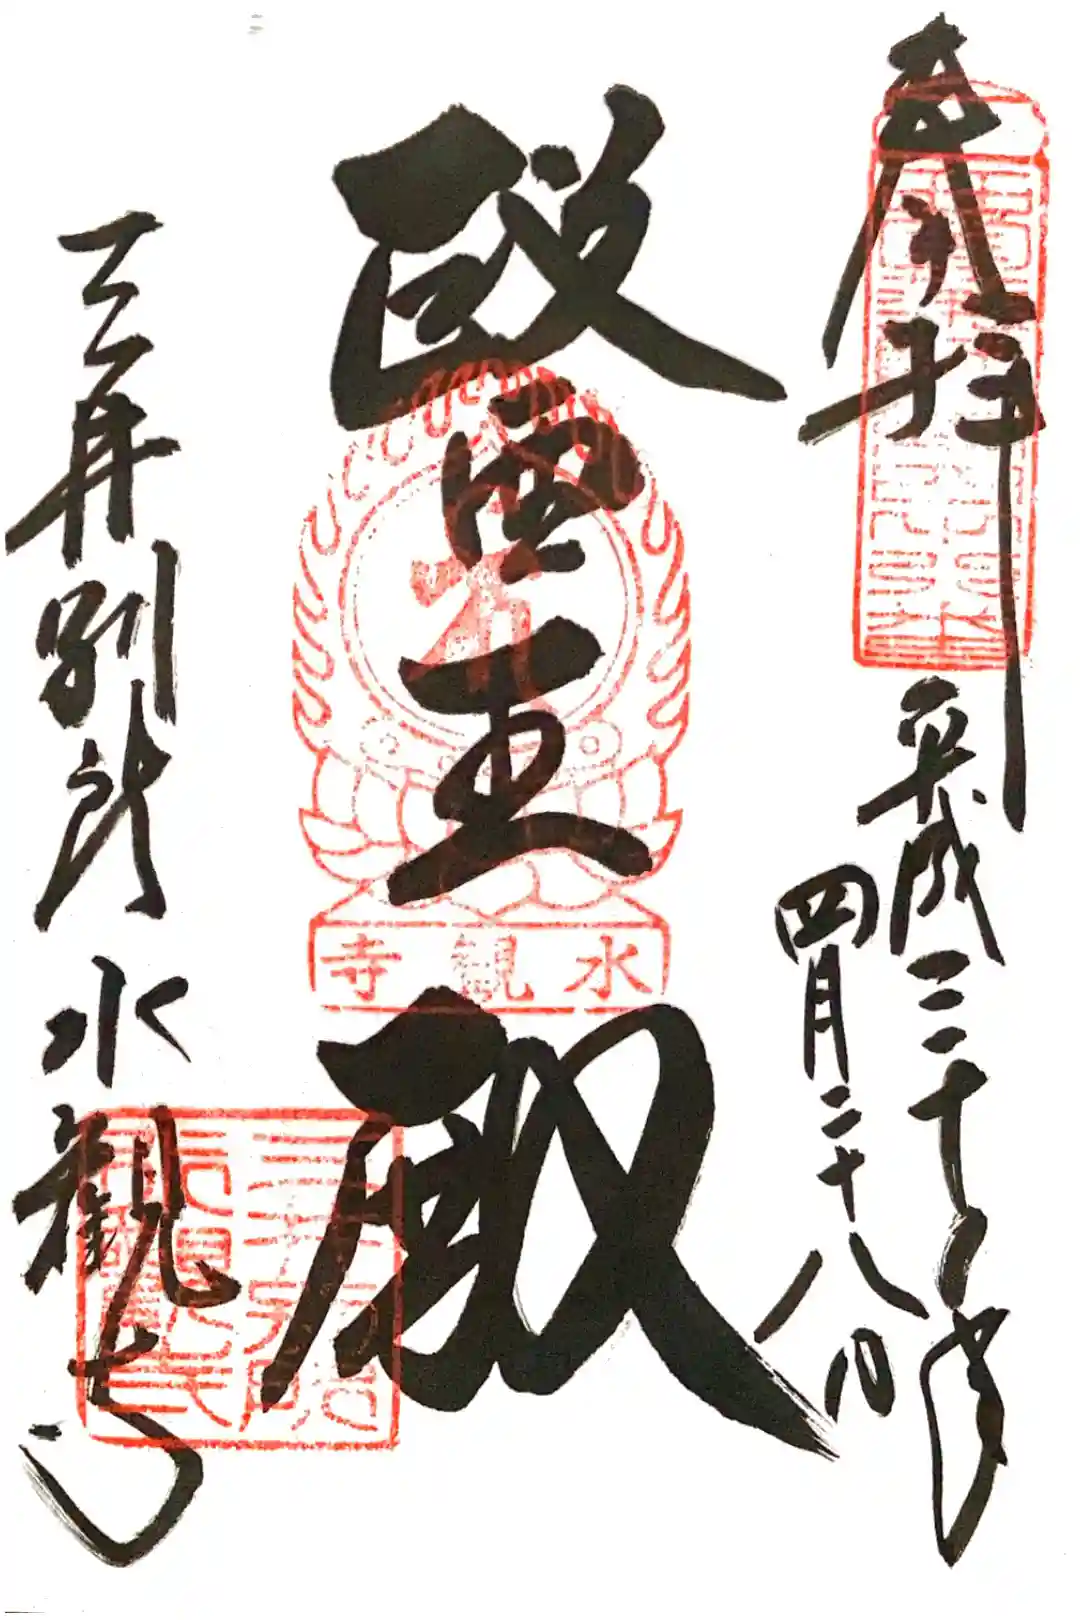 奉拝
平成三十年
四月二十八日
醫王殿
水観寺
三井別所 水観寺